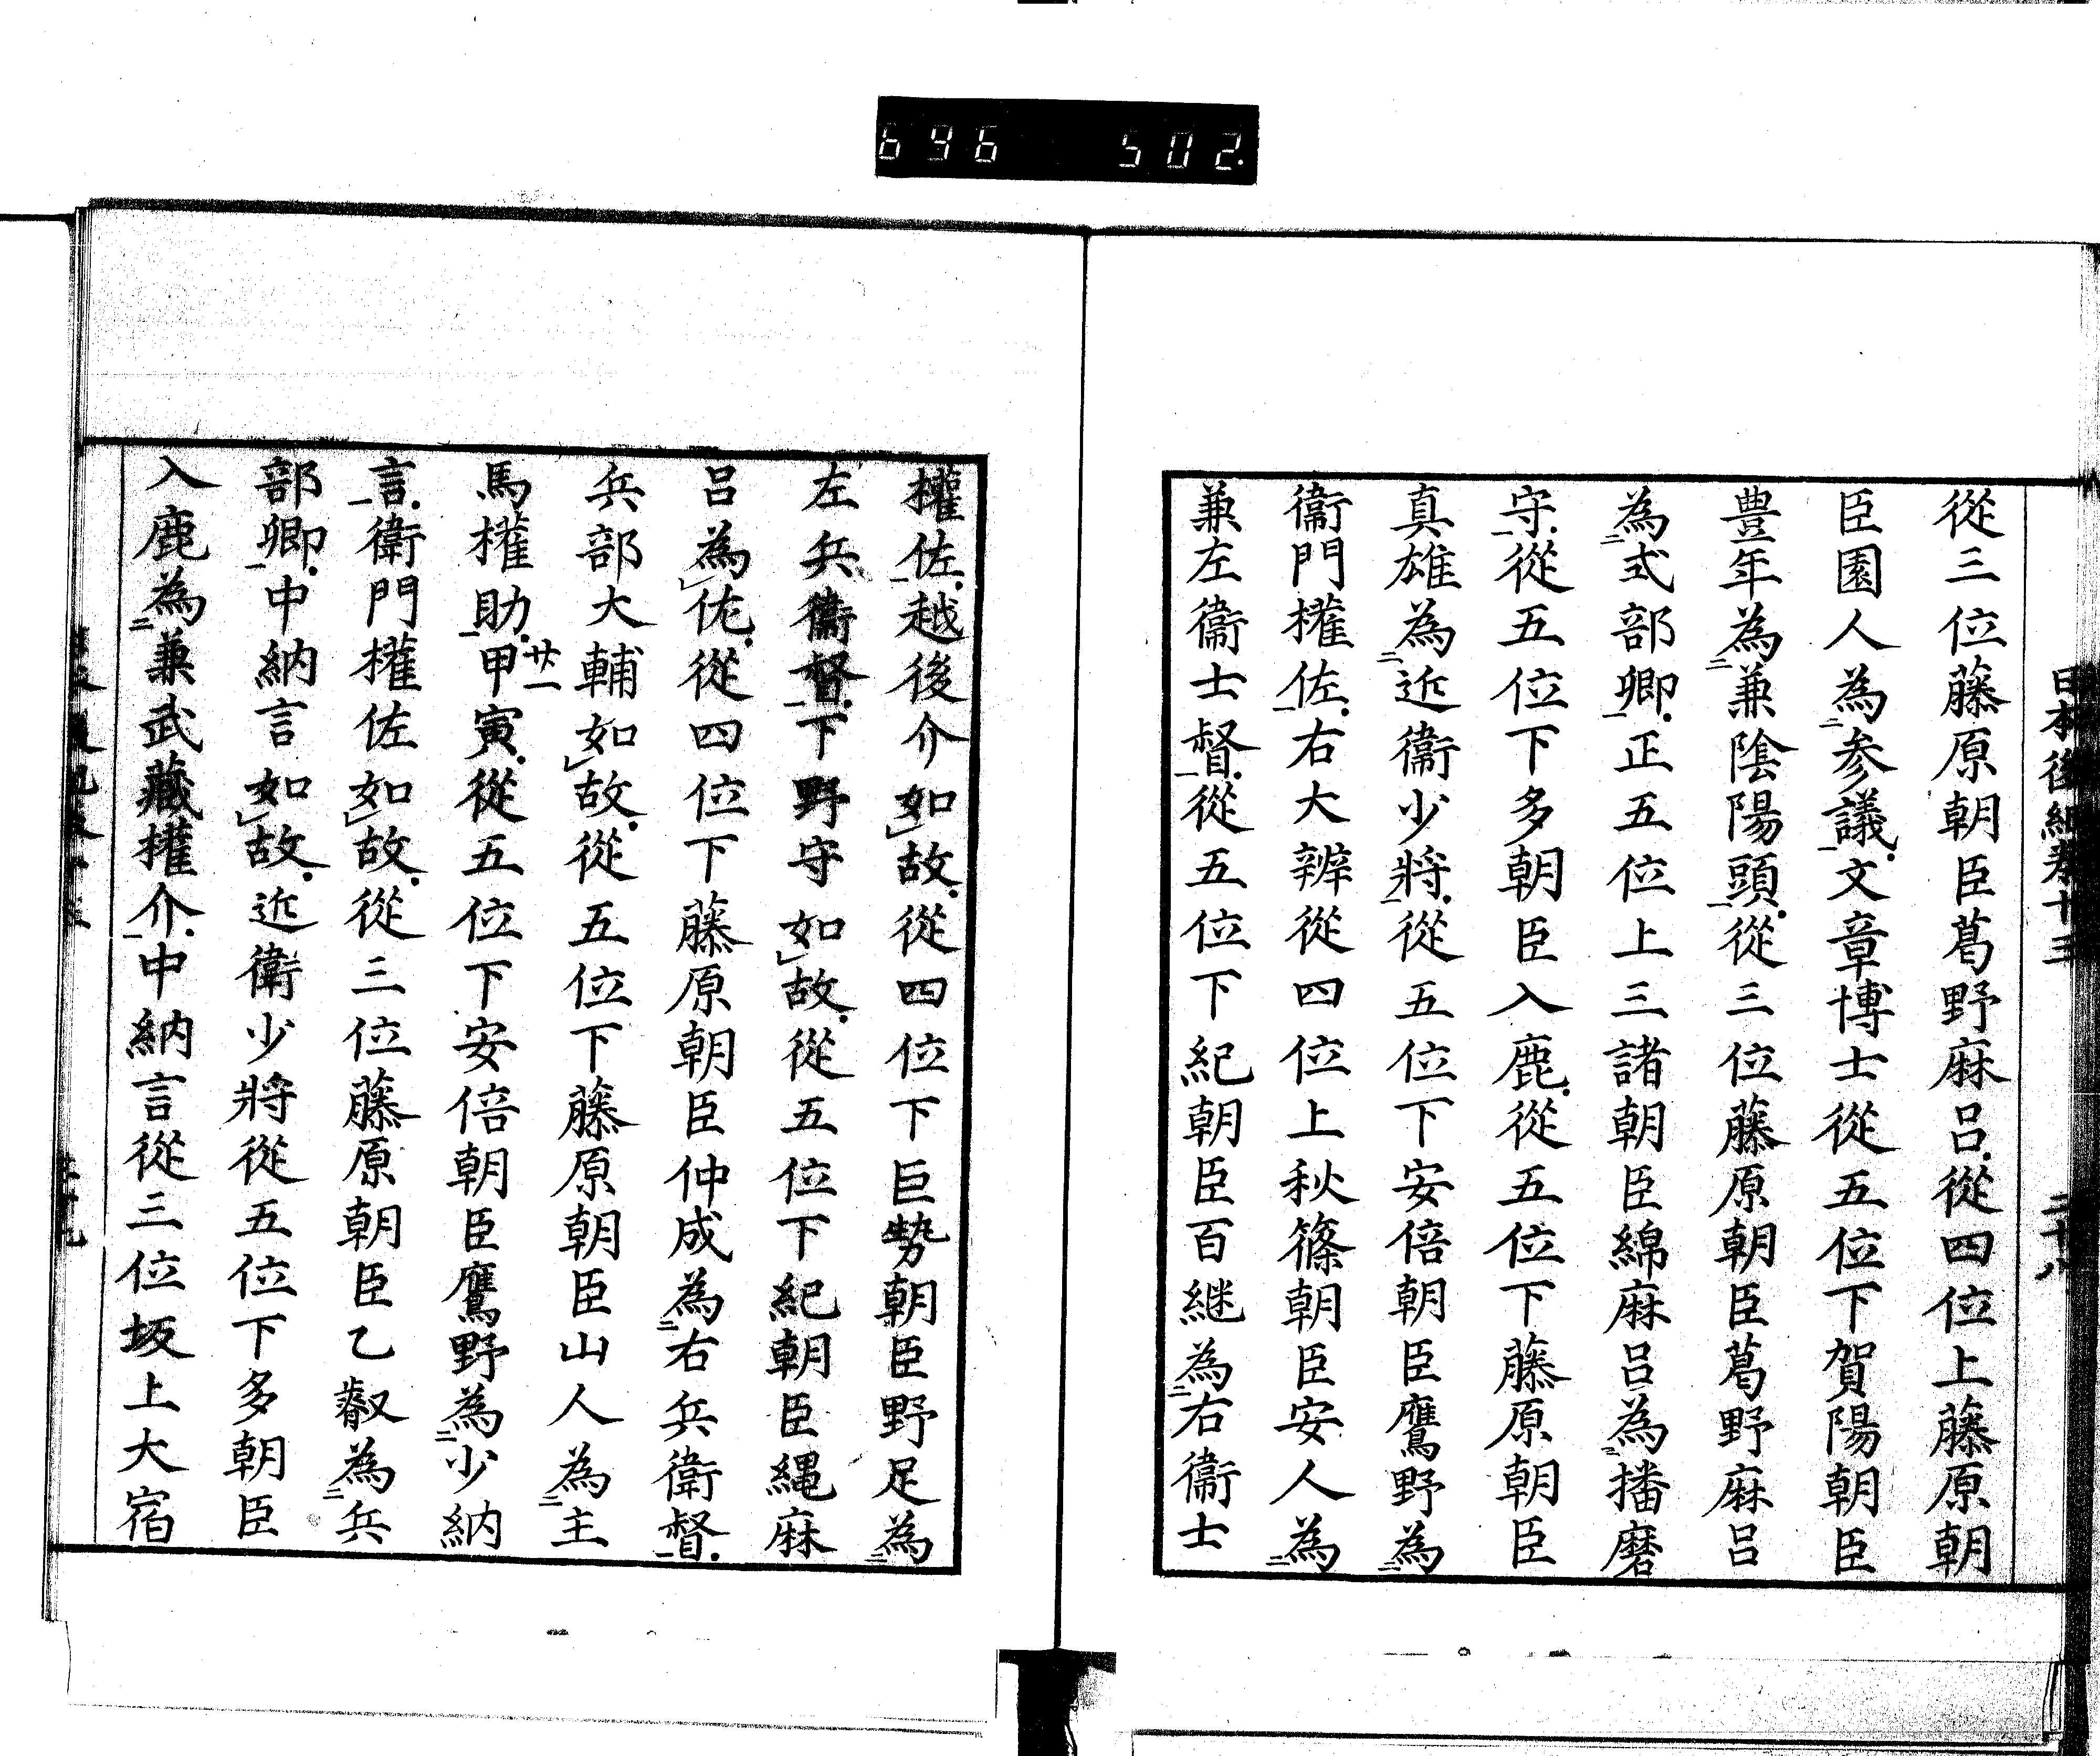 696 502.
日本後紀卷十三 二十八
從三位藤原朝臣葛野麻呂從四位上藤原朝
臣園人為二参議一文章博士從五位下賀陽朝臣
豊年為二兼陰陽頭一從三位藤原朝臣葛野麻呂
為二式部卿一正五位上三諸朝臣綿麻呂為二播磨
守一從五位下多朝臣入鹿從五位下藤原朝臣
真雄為二近衛少將一從五位下安倍朝臣鷹野為二
衛門權佐一右大辨從四位上秋篠朝臣安人為二
兼左衛士督一從五位下紀朝臣百継為二右衛士
權佐一越後介如レ故從四位下巨勢朝臣野足為二
左兵衛督一下野守如レ故從五位下紀朝臣縄麻
呂為レ佐從四位下藤原朝臣仲成為二右兵衛督一
兵部大輔如レ故從五位下藤原朝臣山人為二主
馬權助一甲寅廿一從五位下安倍朝臣鷹野為二少納
言一衛門權佐如レ故從三位藤原朝臣乙叡為二兵
部卿一中納言如レ故近衛少將從五位下多朝臣
入鹿為二兼武藏權介一中納言從三位坂上大宿